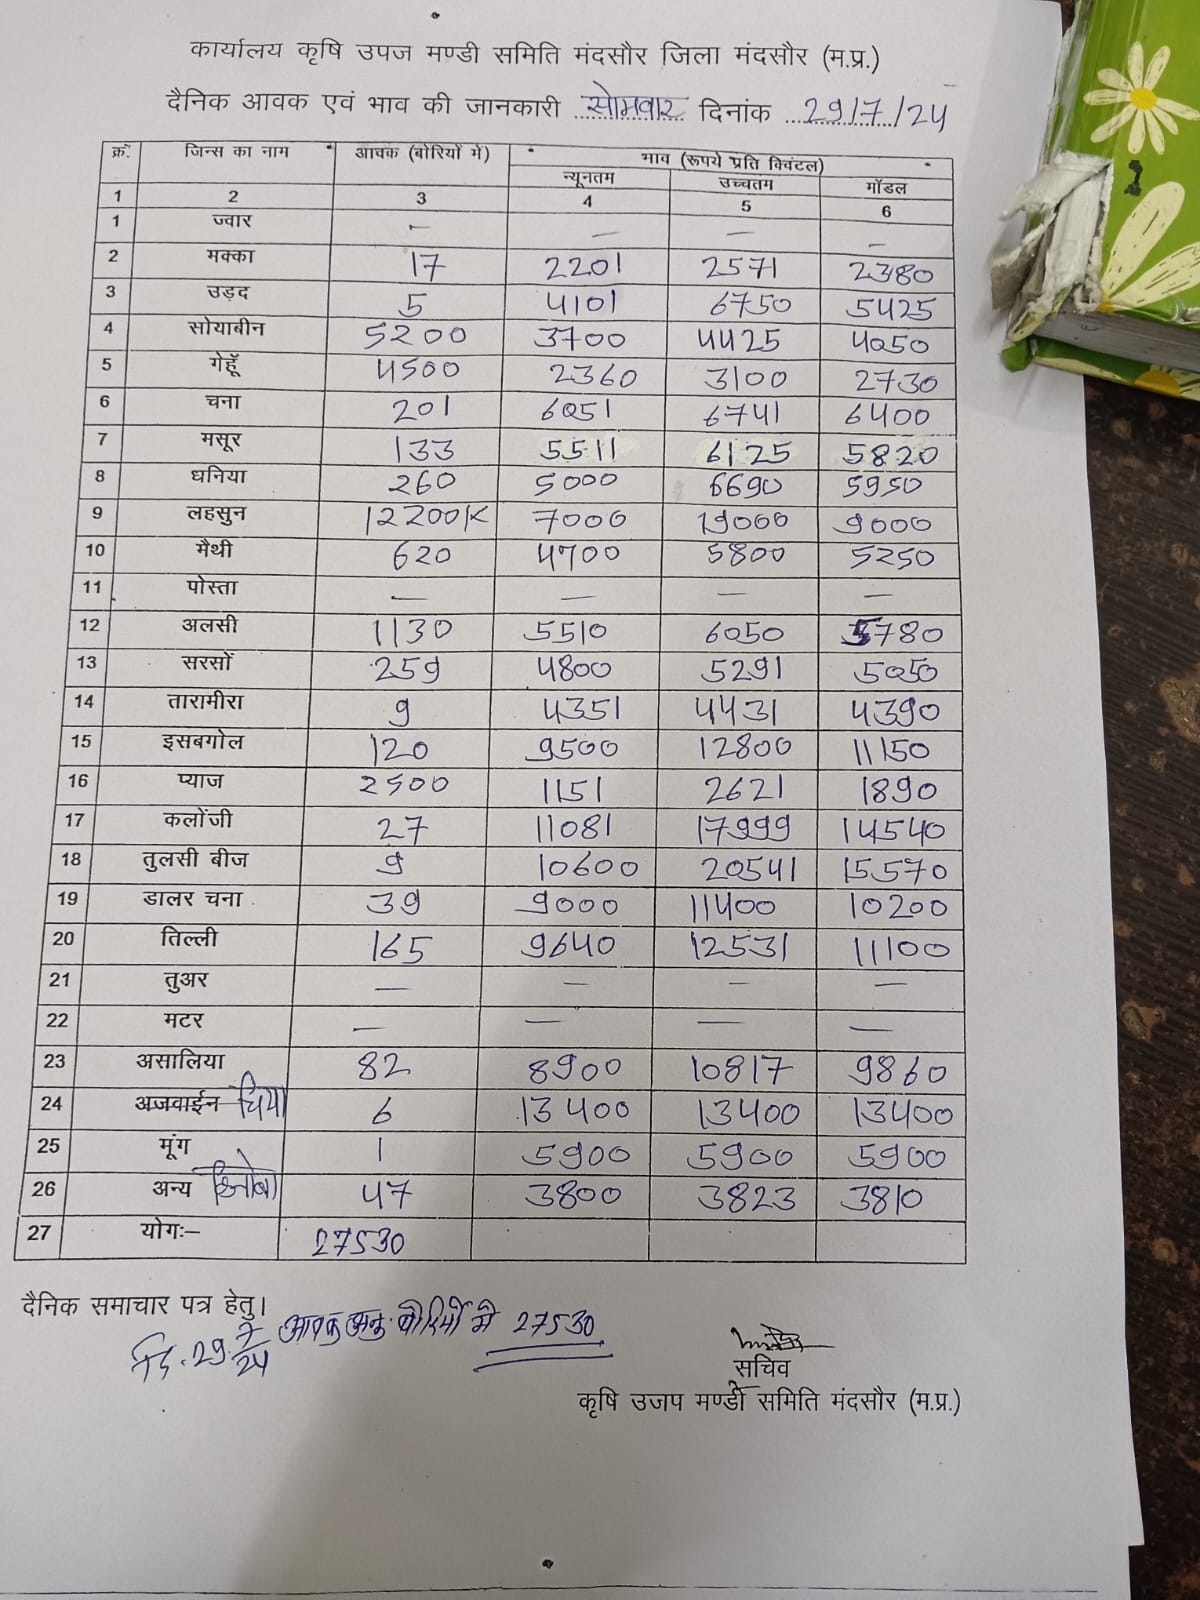 कार्यालय कृषि उपज मण्डी समिति मंदसौर जिला मंदसौर (म.प्र.)
दैनिक आवक एवं भाव की जानकारी सोमवार दिनांक 29/7/24
क्र. जिन्स का नाम आवक (बोरियों में) भाव (रूपये प्रति क्विंटल)
न्यूनतम उच्चतम मॉडल
1 2 3 4 5 6
1 ज्वार — — — —
2 मक्का 17 2201 2571 2380
3 उड़द 5 4101 6750 5425
4 सोयाबीन 5200 3700 4425 4050
5 गेहूॅ 4500 2360 3100 2730
6 चना 201 6051 6741 6400
7 मसूर 133 5511 6125 5820
8 धनिया 260 5000 6690 5950
9 लहसुन 12200/K 7000 19000 9000
10 मैथी 620 4700 5800 5250
11 पोस्ता — — — —
12 अलसी 1130 5510 6050 5780
13 सरसों 259 4800 5291 5050
14 तारामीरा 9 4351 4431 4390
15 इसबगोल 120 9500 12800 11150
16 प्याज 2500 1151 2621 1890
17 कलोंजी 27 11081 17999 14540
18 तुलसी बीज 9 10600 20541 15570
19 डालर चना 39 9000 11400 10200
20 तिल्ली 165 9640 12531 11100
21 तुअर — — — —
22 मटर — — — —
23 असालिया 82 8900 10817 9860
24 अजवाईन चिया 6 13400 13400 13400
25 मूंग 1 5900 5900 5900
26 अन्य 47 3800 3823 3810
27 योगः– 27530
दैनिक समाचार पत्र हेतु।
दि. 29.7/24 आवक अनु. बोरियों मे 27530
सचिव
कृषि उजप मण्डी समिति मंदसौर (म.प्र.)